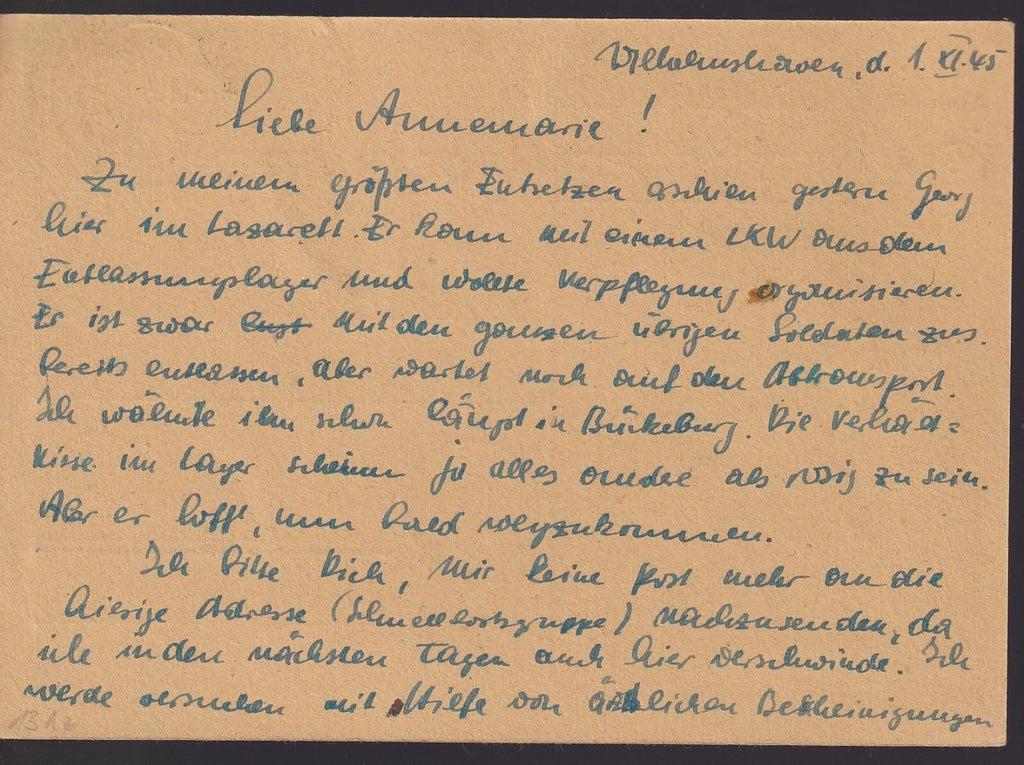 Wilhelmshaven, d. 1. XI. 45
Liebe Annemarie!
Zu meinem größten Entsetzen erschien gestern Georg
hier im Lazarett. Er kam mit einem LKW aus dem
Entlassungslager und wollte Verpflegung organisieren.
Er ist zwar mit den ganzen übrigen Soldaten
bereits entlassen, aber wartet noch auf den Abtransport.
Ich wähnte ihn schon längst in Bückeburg. Die Verhält=
nisse im Lager scheinen ja alles andre als rosig zu sein.
Aber er hofft, nun bald wegzukommen.
Ich bitte Dich, mir keine Post mehr an die
hiesige Adresse (Schnellbootsgruppe) nachzusenden, da
ich in den nächsten Tagen auch hier verschwinde. Ich
werde versuchen mit Hilfe von ärztlichen Bescheinigungen